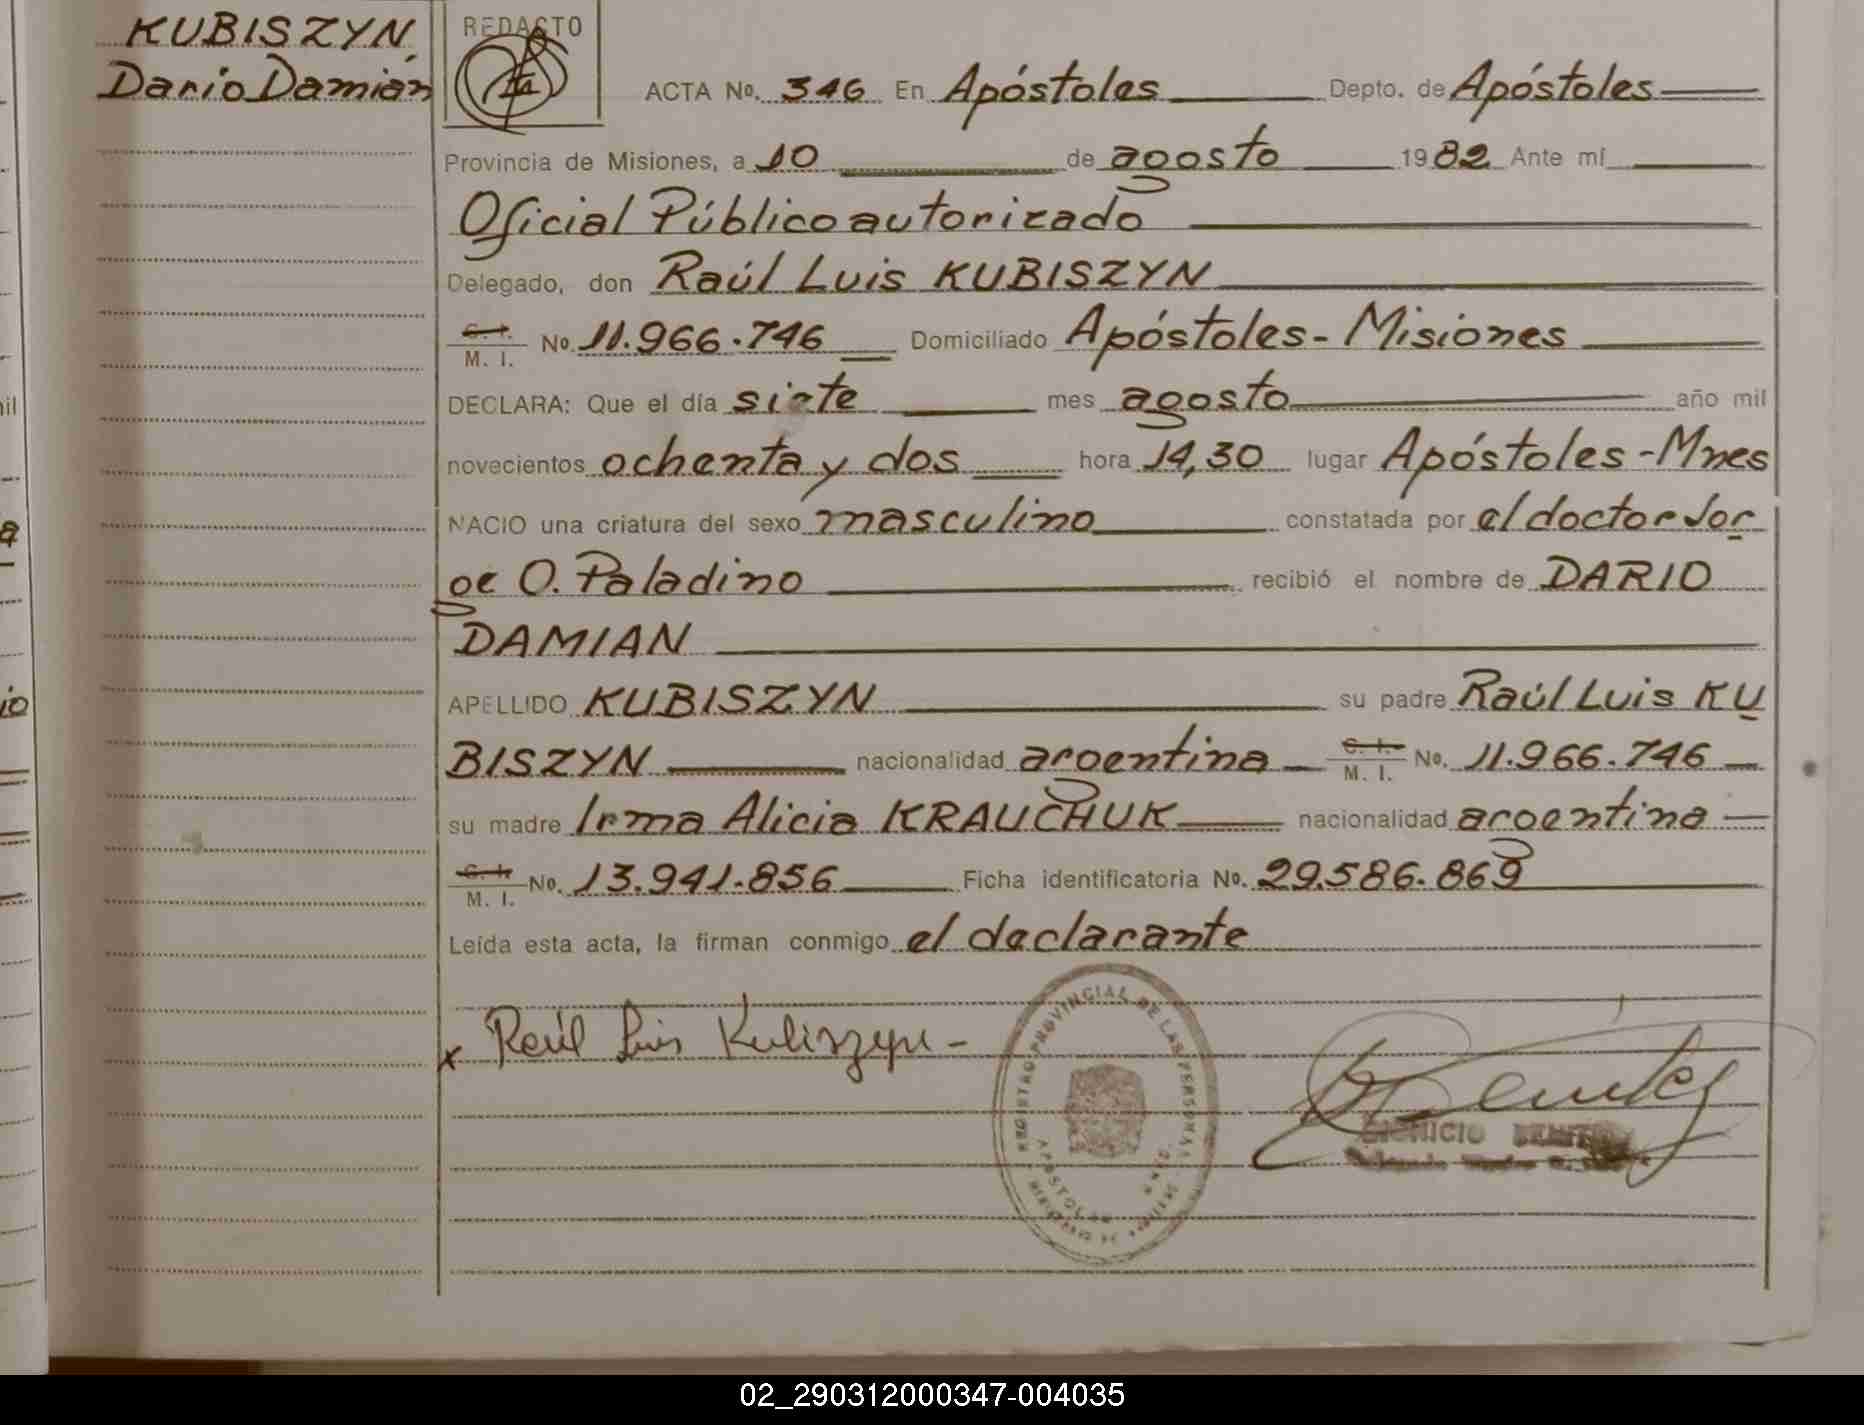 KUBISZYN
Darío Damián
REDACTO
ACTA No. 346 En Apóstoles Depto. de Apóstoles
Provincia de Misiones, a 10 de agosto 1982 Ante mí
Oficial Público autorizado
Delegado, don Raúl Luis KUBISZYN
C. I.
M. I. No. 11.966.746 Domiciliado Apóstoles - Misiones
DECLARA: Que el día siete mes agosto año mil
novecientos ochenta y dos hora 14,30 lugar Apóstoles - Mnes
NACIO una criatura del sexo masculino constatada por el doctor Jor
ge O. Paladino recibió el nombre de DARIO
DAMIAN
APELLIDO KUBISZYN su padre Raúl Luis KU
BISZYN nacionalidad argentina C. I. M. I. No. 11.966.746
su madre Irma Alicia KRAUCHUK nacionalidad argentina
C. I.
M. I. No. 13.941.856 Ficha identificatoria No. 29.586.869
Leída esta acta, la firman conmigo el declarante
x Raúl Luis Kubiszyn -
REGISTRO PROVINCIAL DE LAS PERSONAS
APOSTOLES
Benitez
DIONICIO BENITEZ
02_290312000347-004035